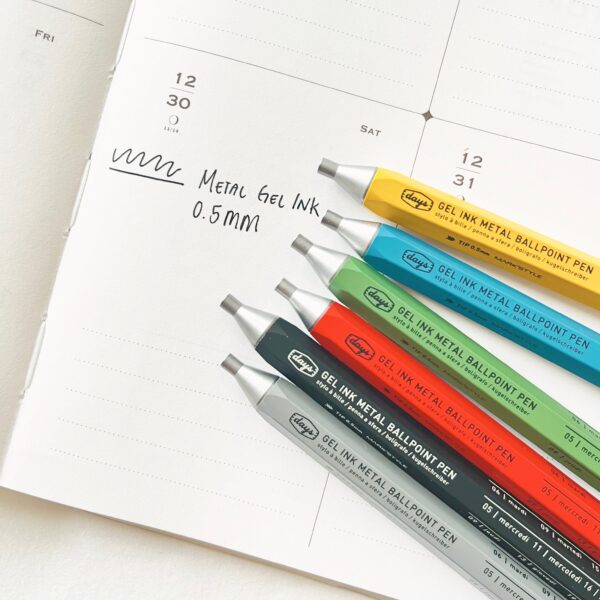 FRI
12
30
11/19
SAT
12
31
METAL GEL INK
0.5MM
days
GEL INK METAL BALLPOINT PEN
stylo à bille / penna a sfera / bolígrafo / kugelschreiber
TIP 0.5mm MARK'STYLE
days
GEL INK METAL BALLPOINT PEN
stylo à bille / penna a sfera / bolígrafo / kugelschreiber
TIP 0.5mm MARK'STYLE
days
GEL INK METAL BALLPOINT PEN
stylo à bille / penna a sfera / bolígrafo / kugelschreiber
TIP 0.5mm MARK'STYLE
05 |
days
GEL INK METAL BALLPOINT PEN
stylo à bille / penna a sfera / bolígrafo / kugelschreiber
04 | mardi
05 | mercredi
days
GEL INK METAL BALLPOINT PEN
stylo à bille / penna a sfera / bolígrafo / kugelschreiber
TIP 0.5mm MARK'STYLE
04 | mardi 09
05 | mercredi 11 | mercredi 16 |
days
GEL INK METAL BALLPOINT PEN
stylo à bille / penna a sfera / bolígrafo / kugelschreiber
TIP 0.5mm MARK'STYLE
04 | mardi
05 | mercredi